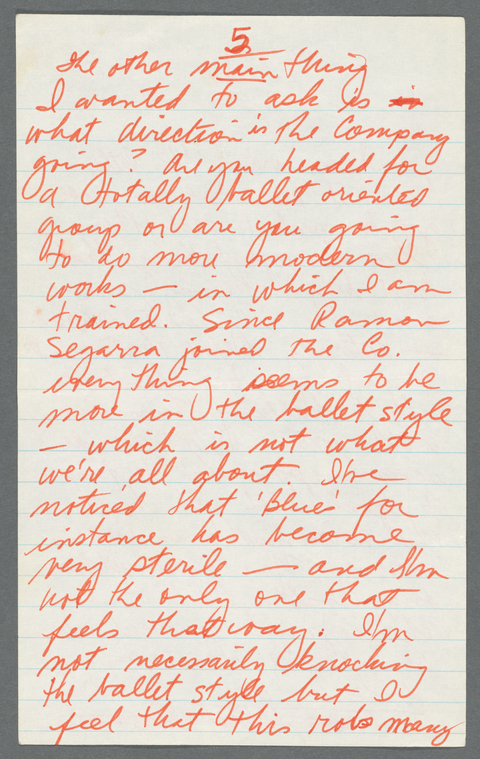 5
The other main thing
I wanted to ask is in
what direction is the Company
going? Are you headed for
a totally ballet oriented
group or are you going
to do more modern
works — in which I am
trained. Since Ramon
Segarra joined the Co.
everything seems to be
more in the ballet style
— which is not what
we're all about. I've
noticed that 'Blues' for
instance has become
very sterile — and I'm
not the only one that
feels that way. I'm
not necessarily knocking
the ballet style but I
feel that this robs many